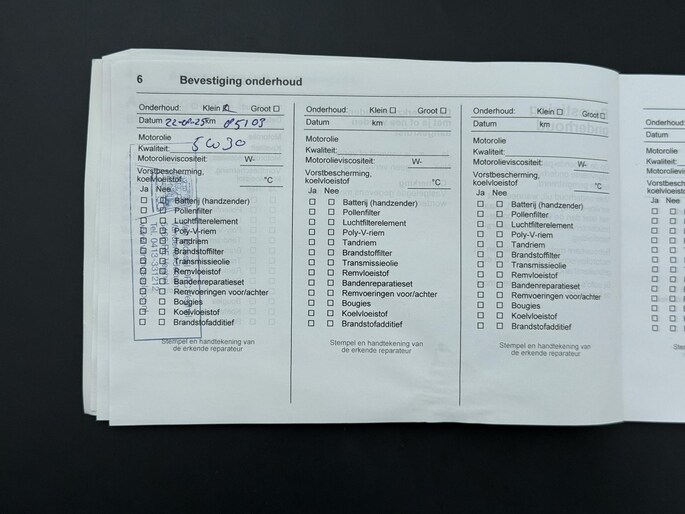 6 Bevestiging onderhoud
Onderhoud: Klein Groot
Datum km 85103
Motorolie
Kwaliteit: 5W30
Motorolieviscositeit: W-
Vorstbescherming,
koelvloeistof °C
Ja Nee
Batterij (handzender)
Pollenfilter
Luchtfilterelement
Poly-V-riem
Tandriem
Brandstoffilter
Transmissieolie
Remvloeistof
Bandenreparatieset
Remvoeringen voor/achter
Bougies
Koelvloeistof
Brandstofadditief
Stempel en handtekening van
de erkende reparateur
Onderhoud: Klein Groot
Datum km
Motorolie
Kwaliteit:
Motorolieviscositeit: W-
Vorstbescherming,
koelvloeistof °C
Ja Nee
Batterij (handzender)
Pollenfilter
Luchtfilterelement
Poly-V-riem
Tandriem
Brandstoffilter
Transmissieolie
Remvloeistof
Bandenreparatieset
Remvoeringen voor/achter
Bougies
Koelvloeistof
Brandstofadditief
Stempel en handtekening van
de erkende reparateur
Onderhoud: Klein Groot
Datum km
Motorolie
Kwaliteit:
Motorolieviscositeit: W-
Vorstbescherming,
koelvloeistof °C
Ja Nee
Batterij (handzender)
Pollenfilter
Luchtfilterelement
Poly-V-riem
Tandriem
Brandstoffilter
Transmissieolie
Remvloeistof
Bandenreparatieset
Remvoeringen voor/achter
Bougies
Koelvloeistof
Brandstofadditief
Stempel en handtekening van
de erkende reparateur
Onderhoud:
Datum
Motorolie
Kwaliteit:
Motorolieviscosi
Vorstbescherm
koelvloeistof
Ja Nee